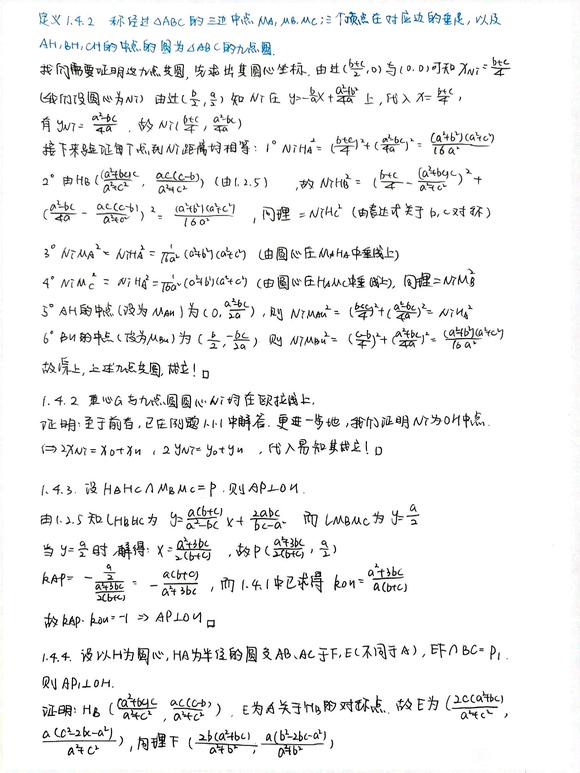 定义1.4.2 称经过△ABC的三边中点MA, MB, MC; 三个顶点在对应边的垂足, 以及
AH, BH, CH的中点的圆为△ABC的九点圆.
我们需要证明这九点共圆, 先求出其圆心坐标. 由过((b+c)/2, 0)与(0,0)可知 xNi = (b+c)/4
(我们设圆心为Ni) 由过(b/2, a/2)知Ni在 y=-b/a x + (a²+b²)/4a 上, 代入 x=(b+c)/4,
有 yNi = (a²-bc)/4a, 故Ni((b+c)/4, (a²-bc)/4a)
接下来验证每个点到Ni距离均相等: 1° NiHA² = ((b+c)/4)² + ((a²-bc)/4a)² = (a²+b²)(a²+c²)/16a²
2° 由HB((a²+bc)c/(a²+c²), ac(c-b)/(a²+c²)) (由1.2.5), 故NiHB² = ((b+c)/4 - (a²+bc)c/(a²+c²))² +
((a²-bc)/4a - ac(c-b)/(a²+c²))² = (a²+b²)(a²+c²)/16a², 同理 = NiHC² (由表达式关于b,c对称)
3° NiMA² = NiHA² = 1/16a² (a²+b²)(a²+c²) (由圆心在MAHA中垂线上)
4° NiMC² = NiHA² = 1/16a² (a²+b²)(a²+c²) (由圆心在HAMC中垂线上), 同理 = NiMB²
5° AH的中点(设为MAH)为(0, (a²-bc)/2a), 则 NiMAH² = ((b+c)/4)² + ((a²-bc)/4a)² = NiHA²
6° BH的中点(设为MBH)为(b/2, -bc/2a) 则 NiMBH² = ((c-b)/4)² + ((a²+bc)/4a)² = (a²+b²)(a²+c²)/16a²
故综上, 上述九点共圆, 成立! □
1.4.2 重心G与九点圆圆心Ni均在欧拉线上.
证明: 至于前者, 已在例题1.1.1中解答. 更进一步地, 我们证明Ni为OH中点.
⇔ 2xNi = xO + xH, 2yNi = yO + yH, 代入易知其成立! □
1.4.3. 设HBHC∩MBMC=P. 则AP⊥OH.
由1.2.5知 LHBHC为 y= a(b+c)/(a²-bc) x + 2abc/(bc-a²) 而LMBMC为 y=a/2
当 y=a/2 时 解得: x = (a²+3bc)/2(b+c), 故P((a²+3bc)/2(b+c), a/2)
kAP = - (a/2)/((a²+3bc)/2(b+c)) = - a(b+c)/(a²+3bc), 而1.4.1中已求得 kOH = (a²+3bc)/a(b+c)
故kAP·kOH=-1 ⇒ AP⊥OH □
1.4.4. 设以H为圆心, HA为半径的圆交AB, AC于F, E(不同于A), EF∩BC=P1.
则AP1⊥OH.
证明: HB((a²+bc)c/(a²+c²), ac(c-b)/(a²+c²)). E为A关于HB的对称点. 故E为(2c(a²+bc)/(a²+c²),
a(c²-2bc-a²)/(a²+c²)), 同理F(2b(a²+bc)/(a²+b²), a(b²-2bc-a²)/(a²+b²))